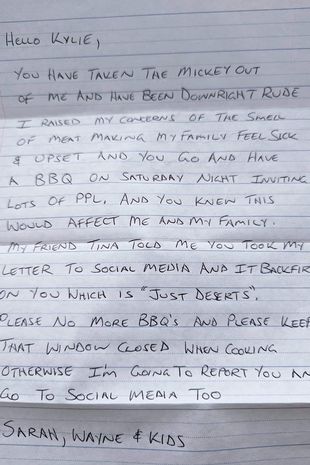 HELLO KYLIE,
YOU HAVE TAKEN THE MICKEY OUT
OF ME AND HAVE BEEN DOWNRIGHT RUDE
I RAISED MY CONCERNS OF THE SMELL
OF MEAT MAKING MY FAMILY FEEL SICK
& UPSET AND YOU GO AND HAVE
A BBQ ON SATURDAY NIGHT INVITING
LOTS OF PPL, AND YOU KNEW THIS
WOULD AFFECT ME AND MY FAMILY.
MY FRIEND TINA TOLD ME YOU TOOK MY
LETTER TO SOCIAL MEDIA AND IT BACKFIR
ON YOU WHICH IS "JUST DESERTS".
PLEASE NO MORE BBQ'S AND PLEASE KEEP
THAT WINDOW CLOSED WHEN COOKING
OTHERWISE I'M GOING TO REPORT YOU AN
GO TO SOCIAL MEDIA TOO
SARAH, WAYNE & KIDS